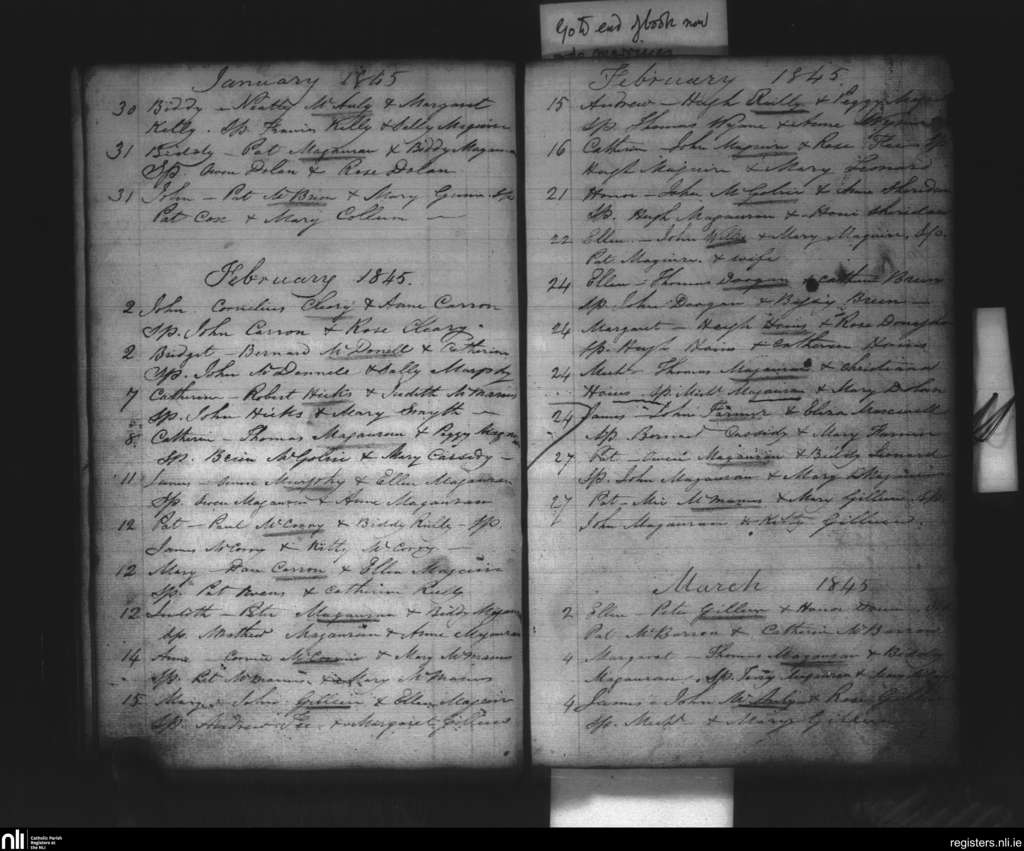 Go to end of book now
January 1845
30 Biddy – Natty McAuly & Margaret
Kelly. Sp. Francis Kelly & Sally Maguire
31 Biddy – Pat Magauran & Biddy Magauran
Sp. Owen Dolan & Rose Dolan
31 John – Pat McBrien & Mary Gunn Sp
Pat Cox & Mary Collum –
February 1845.
2 John Cornelius Cleary & Anne Carron
Sp. John Carron & Rose Cleary.
2 Bridget – Bernard McDonell & Catherine
Sp. John McDonnell & Sally Murphy
7 Catherine – Robert Hicks & Judith McManus
Sp. John Hicks & Mary Smyth –
8 Catherin – Thomas Magauran & Peggy
Sp. Brien McGolric & Mary Cassidy –
11 James – Murphy & Ellen Magauran
Sp. Owen Magauran & Anne Magauran
12 Pat – Paul McCorry & Biddy Reilly – Sp.
James McCorry & Kitty McCorry –
12 Mary – Dan Carron & Ellen Maguire
Sp. Pat & Catherine Reily
12 Judith – Peter Magauran & Biddy
Sp. Mathew Magauran & Anne Magauran
14 Anne – & Mary McManus
Sp. Pat McManus & Mary McManus
15 Mary – John Gilleen & Ellen Maguire
Sp. Andrew Fee & Margaret Gilleens
February 1845
15 Andrew – Hugh Reilly & Peggy
Sp. Thomas Wynne & Anne
16 Catherin – John Maguire & Rose Sp
Hugh Maguire & Mary Leonard
21 Honor – John McGolric & Anne Sheridan
Sp. Hugh Magauran & Honor Sheridan
22 Ellen – John Willis & Mary Maguire Sp.
Pat Maguire & wife
24 Ellen – Thomas Doogan & Catherin Breen
Sp. John Doogan & Betsy Breen –
24 Margaret – Hugh Hoins & Rose
Sp. Hugh Hoins & Catherin Hoins
24 Michl Thomas Magauran & Christiana
Hoins – Sp. Michl Magauran & Mary Dolan
24 James – John Farmer & Eliza
Sp. Bernard Cassidy & Mary Farmer
27 Pat – Owen Magauran & Biddy Leonard
Sp. John Magauran & Mary
27 Pat – McManus & Mary Gilleen Sp.
John Magauran & Kitty Gilleens.
March 1845
2 Ellen Peter Gilleen & Honor
Pat McBarron & Catherin McBarron
4 Margaret – Thomas Magauran & Biddy
Magauran – Sp.
4 James – John McAuly & Rose
Sp. Michl & Mary
nli
Catholic Parish
Registers at
the NLI
registers.nli.ie